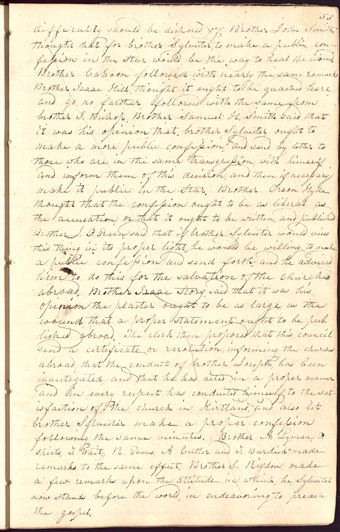 53
difficulty should be disposed of. Brother John Smith
thought that for brother Sylvester to make a public con-
fession in the Star would be the way to heal the wound
Brother Cahoon followed with nearly the same remarks
Brother Isaac Hill thought it ought to be quashed here
and go no farther followed with the same from
brother I. Bishop. Brother Samuel H. Smith said that
it was his opinion that, brother Sylvester ought to
make a more public confession, and send by letter to
those who are in the same transgression with himself
and inform them of this decision, and then if necessary
make it public in the Star. Brother Orson Hyde
thought that the confession ought to be as liberal as
the accusation or that it ought to be written, and published
Brother said that if brother Sylvester would view
this thing in its proper light, he would be willing to make
a public confession and send forth, and he advised
him to do this for the salvation of the churches
abroad. Brother Isaac Story said that it was his
opinion the plaster ought to be as large as the
wound that a proper statement ought to be pub-
lished abroad. The clerk then proposed that this council
send a certificate or resolution informing the churches
abroad, that the conduct of brother Joseph, has been
investigated and that he has acted in a proper manner
and in every respect has conducted himself to the sat-
isfaction of the church in Kirtland, and also let
brother Sylvester make a proper confession
following the same minutes. Brother A. Lyman, O
R. Evans, A. Cutler and made
remarks to the same effect. Brother S. Rigdon made
a few remarks upon the attitude in which, he, Sylvester
now stands before the world, in endeavoring to preach
the gospel.